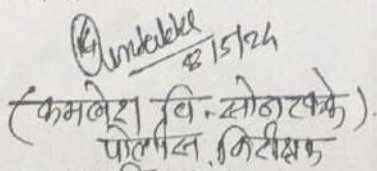 8/5/24
(कमलेश वि. सोनटक्के).
पोलीस निरीक्षक